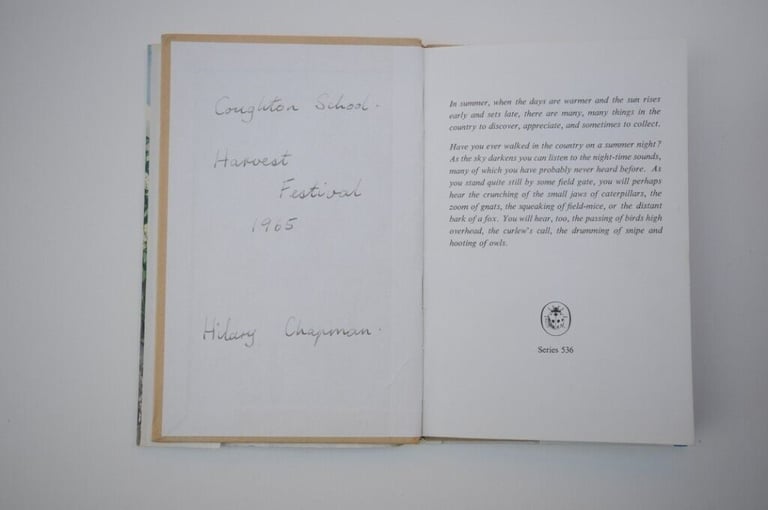 Coughton School.
Harvest
Festival
1965
Hilary Chapman.
In summer, when the days are warmer and the sun rises
early and sets late, there are many, many things in the
country to discover, appreciate, and sometimes to collect.
Have you ever walked in the country on a summer night?
As the sky darkens you can listen to the night-time sounds,
many of which you have probably never heard before. As
you stand quite still by some field gate, you will perhaps
hear the crunching of the small jaws of caterpillars, the
zoom of gnats, the squeaking of field-mice, or the distant
bark of a fox. You will hear, too, the passing of birds high
overhead, the curlew's call, the drumming of snipe and
hooting of owls.
Series 536